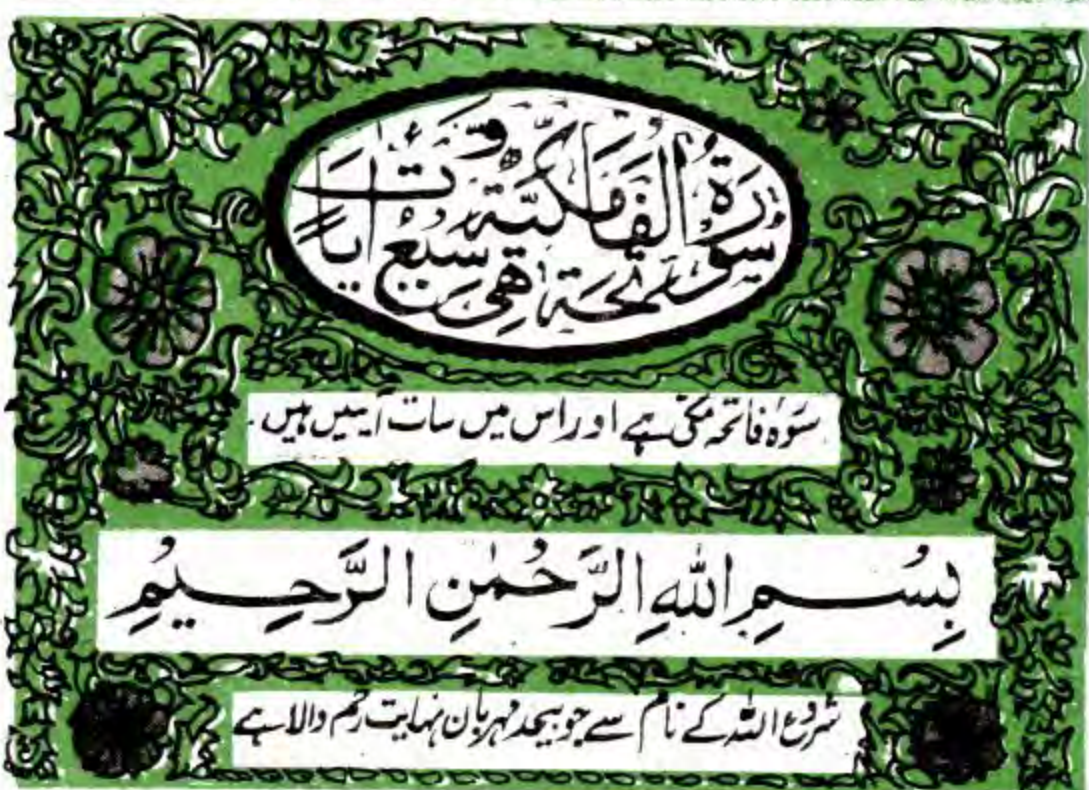 سُوْرَةُ الْفَاتِحَةِ مَكِّيَّةٌ وَّهِيَ سَبْعُ اٰيَاتٍ
سورۂ فاتحہ مکی ہے اور اس میں سات آیتیں ہیں۔
بِسْمِ اللّٰهِ الرَّحْمٰنِ الرَّحِيْمِ
شروع اللہ کے نام سے جو بیحد مہربان نہایت رحم والا ہے